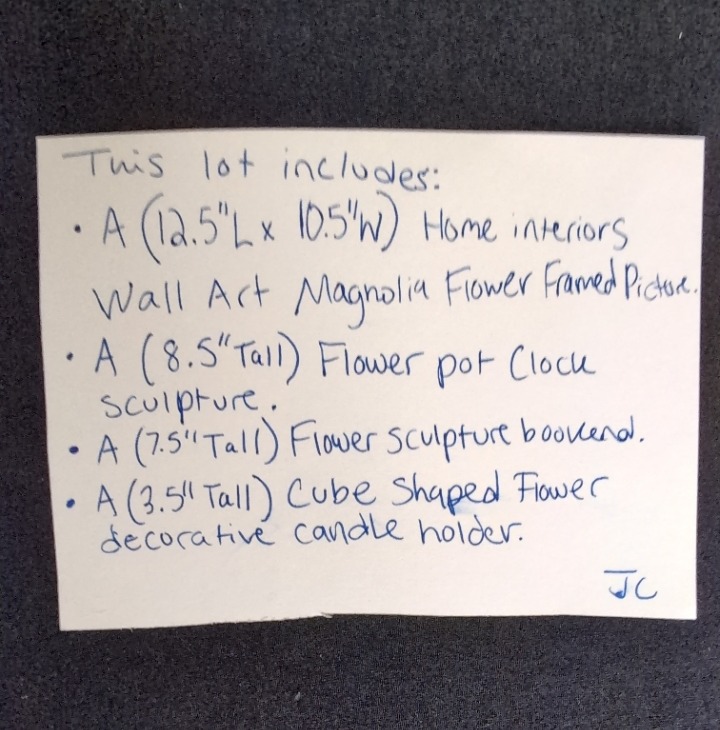 This lot includes:
• A (12.5"L x 10.5"W) Home interiors
Wall Art Magnolia Flower Framed Picture.
• A (8.5" Tall) Flower pot Clock
sculpture.
• A (7.5" Tall) Flower sculpture bookend.
• A (3.5" Tall) Cube Shaped Flower
decorative candle holder.
JC